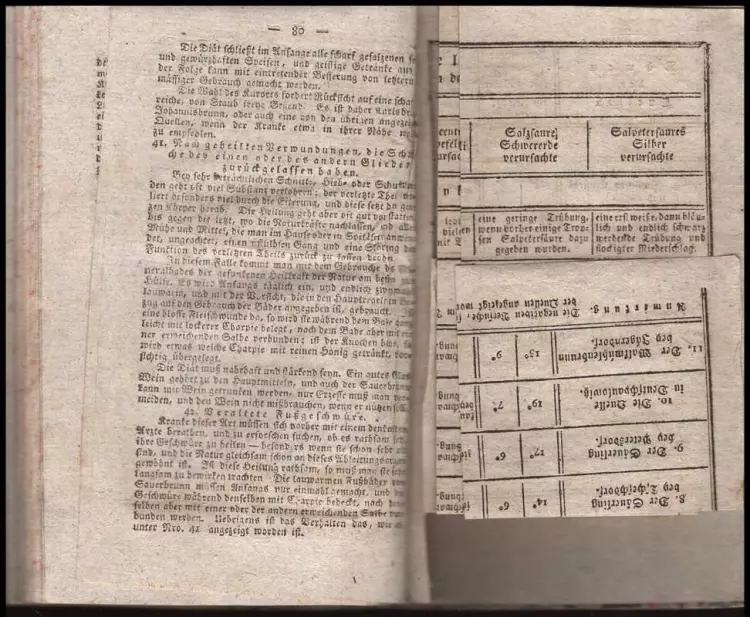 — 80 —
Die Diät schließt im Anfange alle scharf gesalzenen
und gewürzhaften Speisen, und geistige Getränke aus
der Folge kann mit eintretender Besserung von letztern
mäßiger Gebrauch gemacht werden.
Die Wahl des Kurorts fordert Rücksicht auf eine
reiche, von Staub freye Gegend. Es ist daher Karlsbr
Johannisbrunn, oder auch eine von den übrigen angezeig
Quellen, wenn der Kranke etwa in ihrer Nähe
zu empfehlen.
41. Nach geheilten Verwundungen, die Schw
che des einen oder des andern Gliedes
zurückgelassen haben.
Bey sehr beträchtlichen Schnitt-, Hieb- oder
den geht oft viel Substanz verlohren; der verletzte Theil
liert besonders viel durch die Eiterung, und diese setzt den gan
zen Körper herab. Die Heilung geht aber oft gut von statten
bis gegen die letzt, wo die Naturkräfte nachlassen, und alle
Mühe und Mittel, die man im Hause oder in Spitälern anwen
det, ungeachtet, einen Gang und eine Störung der
Funktion des verletzten Theils zurück zu lassen
In diesem Falle kommt man mit dem Gebrauche des
neralbades der gesunkenen Heilkraft der Natur am besten zu
Hülfe. Es wird Anfangs täglich ein, und endlich zweymal
lauwarm, und mit der Vorsicht, die in den Hauptregeln in
zug auf den Gebrauch der Bäder angegeben ist, gebraucht.
eine bloße Fleischwunde da, so wird sie während dem Bade ganz
leicht mit lockerer Charpie belegt, nach dem Bade aber mit ei
ner erweichenden Salbe verbunden; ist der Knochen blos, so
wird etwas welche Charpie mit reinen Honig getränkt, vor
sichtig übergelegt.
Die Diät muß nahrhaft und stärkend seyn. Ein gutes Glas
Wein gehört zu den Hauptmitteln, und auch der Sauerbrunn
kann mit Wein getrunken werden, nur Erzesse muß man ver
meiden, und den Wein nicht mißbrauchen, wenn er nützen soll.
42. Veraltete Fußgeschwüre.
Kranke dieser Art müssen sich vorher mit einem denkenden
Arzte berathen, und zu erforschen suchen, ob es rathsam
ihre Geschwüre zu heilen — besonders wenn sie schon sehr alt
sind, und die Natur gleichsam schon an dieses Ableitungsorgan
gewöhnt ist. Ist diese Heilung rathsam, so muß man sie sehr
langsam zu bewirken trachten. Die lauwarmen Fußbäder vom
Sauerbrunn müssen Anfangs nur einmahl gemacht, und die
Geschwüre während denselben mit Charpie bedeckt, nach dem
selben aber mit einer oder der andern erweichenden Salbe ver
bunden werden. Uebrigens ist das Verhalten das, wie es
unter Nro. 41 angezeigt worden ist.
Salzsaure
Schwererde
verursachte
Salpetersaures
Silber
verursachte
eine geringe Trübung,
wenn vorher einige Tro-
fen Salpetersäure dazu
gegeben wurden.
eine erst weiße, dann bläu-
lich und endlich schwarz
werdende Trübung und
flockigter Niederschlag.
Anmerkung. Die negativen Versuche,
der Quellen angezeigt wor
11. Der Wallmühlenbrunn
bey Jägerndorf.
15° 9°
10. Die Quelle
in Deutschpaulowitz.
19° 7°
9. Der Säuerling
bey Petersdorf.
17° 6°
8. Der Säuerling
bey Tscheschdorf.
14° 6°